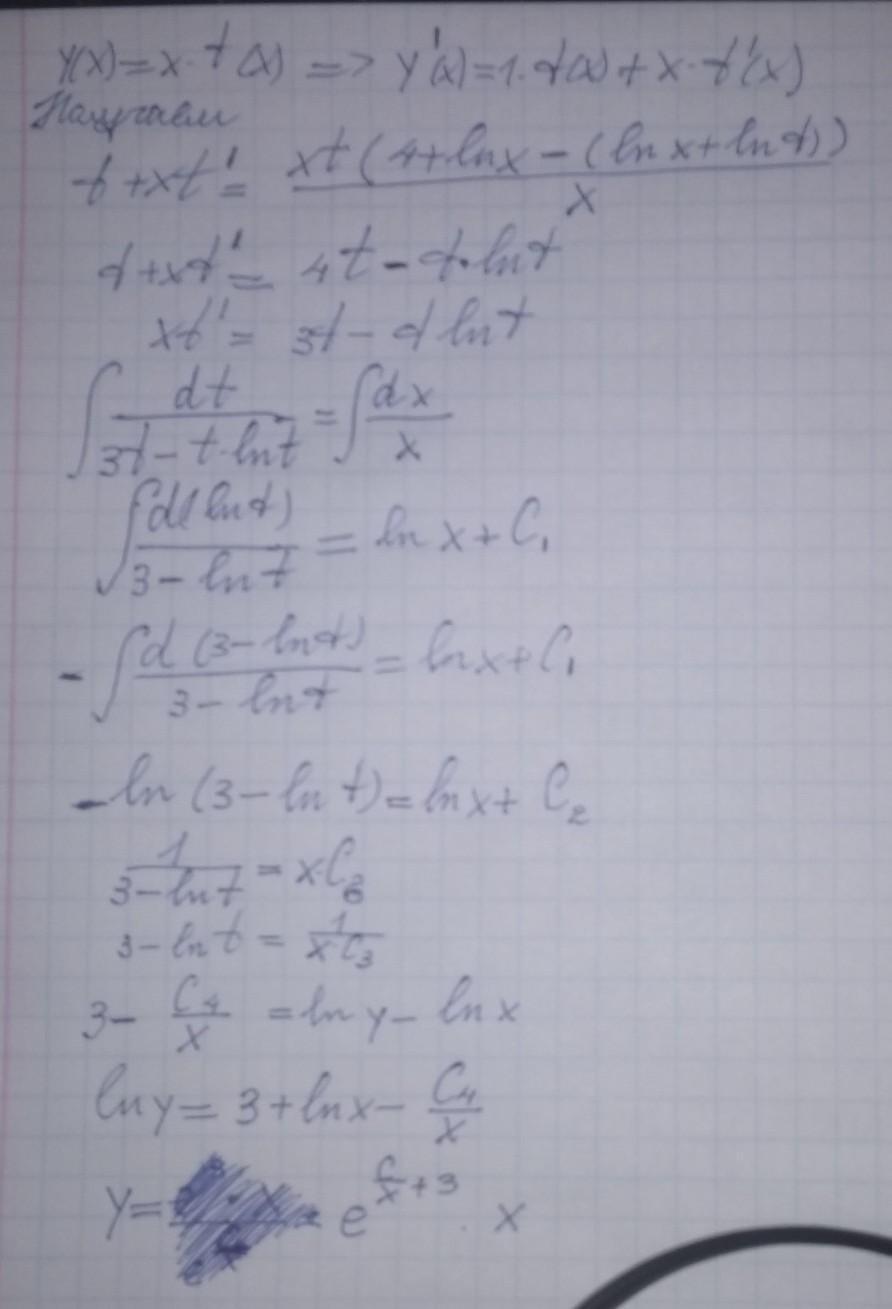 y(x)=x·t(x) => y'(x)=1·t(x)+x·t'(x)
Получаем
t+xt'= xt(4+lnx-(lnx+lnt))/x
t+xt'= 4t-t·lnt
xt'= 3t-t lnt
∫dt/(3t-t·lnt)=∫dx/x
∫d(lnt)/(3-lnt) = lnx+C₁
-∫d(3-lnt)/(3-lnt) = lnx+C₁
-ln(3-lnt)=lnx+ C₂
1/(3-lnt) = x·C₃
3-lnt = 1/(xC₃)
3- C₄/x =lny-lnx
lny=3+lnx- C₄/x
y= e^(C/x+3) · x